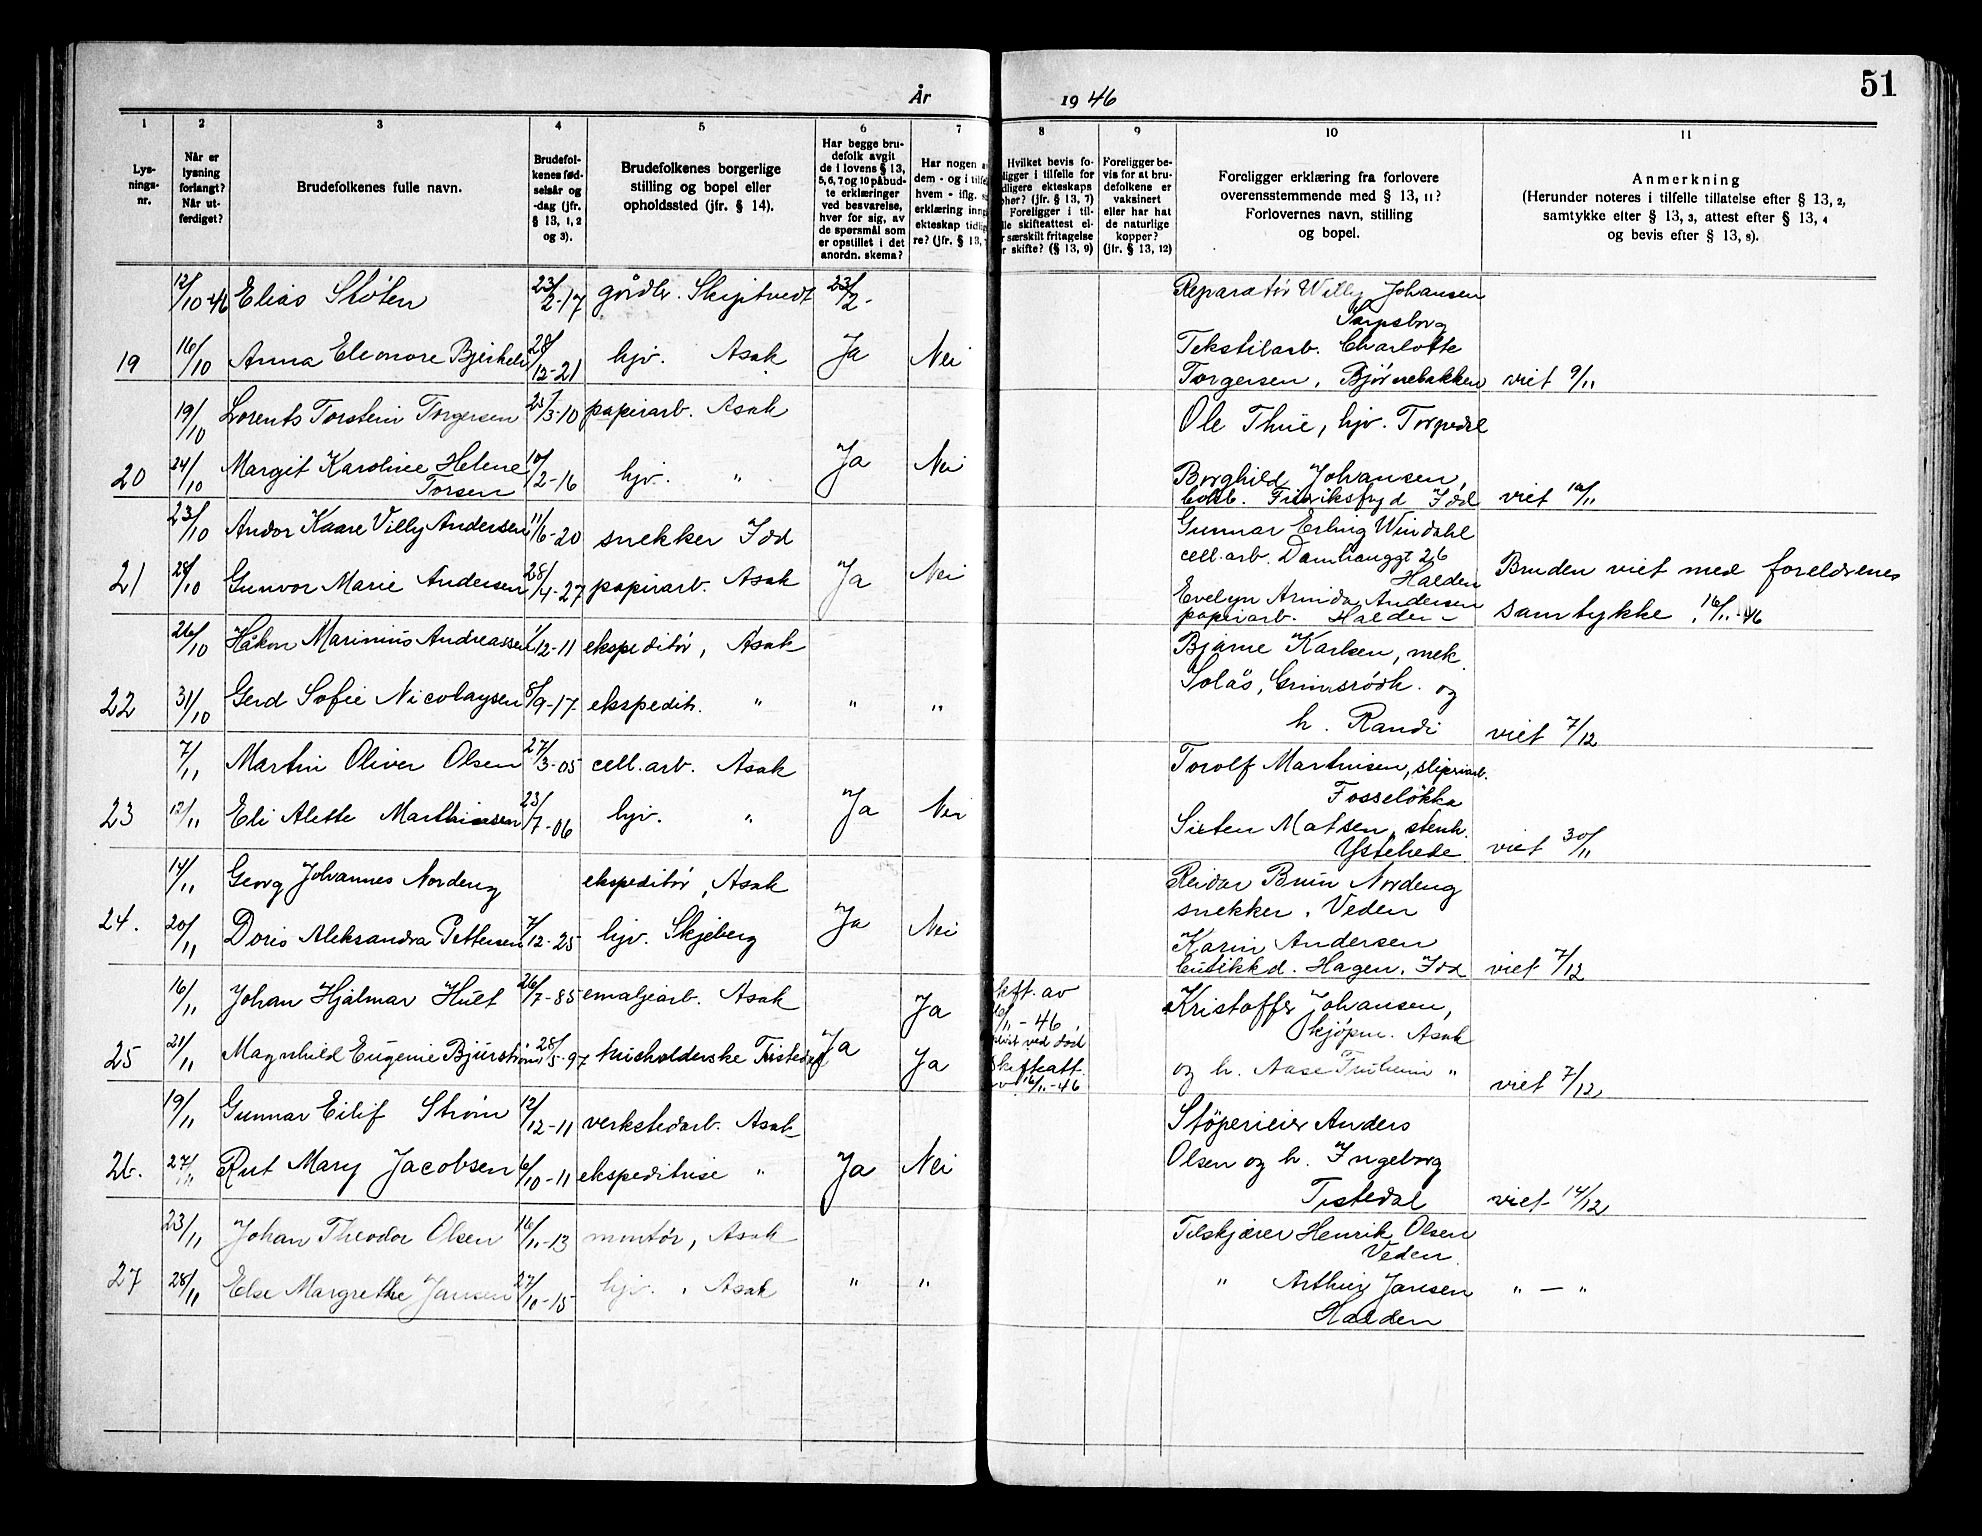 51
År 1946
1 2 3 4 5 6 7 8 9 10 11
Lys-
nings-
nr.
Når er
lysning
forlangt?
Når ut-
ferdiget?
Brudefolkenes fulle navn.
Brudefol-
kenes fød-
selsår og
-dag (jfr.
§ 13, 1, 2
og 3).
Brudefolkenes borgerlige
stilling og bopel eller
opholdssted (jfr. § 14).
Har begge bru-
defolk avgit
de i lovens § 13,
5, 6, 7 og 10 påbud-
te erklæringer
ved besvarelse,
hver for sig, av
de spørsmål som
er opstillet i det
anordn. skema?
Har nogen a
dem - og i tilfe
hvem - iflg.
erklæring inng
ekteskap tidlig
re? (jfr. § 13,
Hvilket bevis fo-
ligger i tilfelle for
dligere ekteskaps
pher? (jfr. § 13, 7)
Foreligger i til-
lle skifteattest el-
r særskilt fritagelse
r skifte? (§ 13, 9)
Foreligger be-
vis for at bru-
defolkene er
vaksinert
eller har hat
de naturlige
kopper?
(jfr. § 13, 12)
Foreligger erklæring fra forlovere
overensstemmende med § 13, 11?
Forlovernes navn, stilling
og bopel.
Anmerkning
(Herunder noteres i tilfelle tillatelse efter § 13, 2,
samtykke efter § 13, 3, attest efter § 13, 4
og bevis efter § 13, 8).
12/10-46 Elias Sloten 23/2-17 gårdbr. Skiptvedt 23/2- Reparatør Willy Johansen
Sarpsborg
19 16/10 Anna Eleonore 28/12-21 hjv. Asak Ja Nei Tekstilarb. Charlotte
Torgersen, Bjørnebakken viet 9/11
19/10 Lorents Torstein Torgersen 25/3-10 papirarb. Asak Ole Thue, hjv. Torpedal
20 24/10 Margit Karoline Helene 10/2-16 hjv. " Ja Nei Borghild Johansen,
Torsen Fredriksfryd Idd viet 16/11
23/10 Andor Kaare Villy Andersen 11/6-20 snekker Idd Gunnar Erling Windahl
cell.arb. Damhauggt 26
Halden
21 28/10 Gunvor Marie Andersen 28/4-27 papirarb. Asak Ja Nei Bruden viet med foreldrenes
Evelyn Arnida Andersen
papirarb. Halden - samtykke. 16/11-46
26/10 Håkon Marinius Andreassen 1/12-11 ekspeditør, Asak Bjarne Karlsen, mek.
22 31/10 Gerd Sofie Nicolaysen 8/9-17- ekspeditr. " " " Solås, Grimsrødh. og
h. Randi viet 7/12
7/11 Martin Oliver Olsen 27/3-05 cell.arb. Asak Torolf Martinsen, sliperiarb.
Fosseløkka
23 12/11 Eli Alette Marthinsen 23/7-06 hjv. " Ja Nei Sisten Matsen, stenh.
Ystehede viet 30/11
14/11 Georg Johannes Nordeng ekspeditør, Asak Reidar Bruun Nordeng
snekker, Veden
24. 20/11 Doris Aleksandra Pettersen 7/12-25 hjv. Skjeberg Ja Nei Karin Andersen
butikkd. Hagen, Idd viet 7/12
16/11 Johan Hjalmar Hult 26/7-85 emaljearb. Asak Ja
kift. av
/11-46,
løst ved død
Kristoffer Johansen,
kjøpm. Asak
25 21/11 Magnhild Eugenie Bjurstrøm 28/5-97 husholderske Tistedal Ja Ja
Skifteatt.
v 16/11-46
og h. Aase " viet 7/12
19/11 Gunnar Eilif Strøm 12/12-11 verkstedarb. Asak Støperieier Anders
26. 27/11 Rut Mary Jacobsen 6/10-11 ekspeditrise " Ja Nei Olsen og h. Ingeborg
Tistedal viet 14/12
23/11 Johan Theodor Olsen 16/11-13 montør, Asak Tilskjærer Henrik Olsen
Veden.
27 28/11 Else Margrethe Jansen 27/10-15 hjv. , Asak " " " Arthur Jansen " - "
Halden